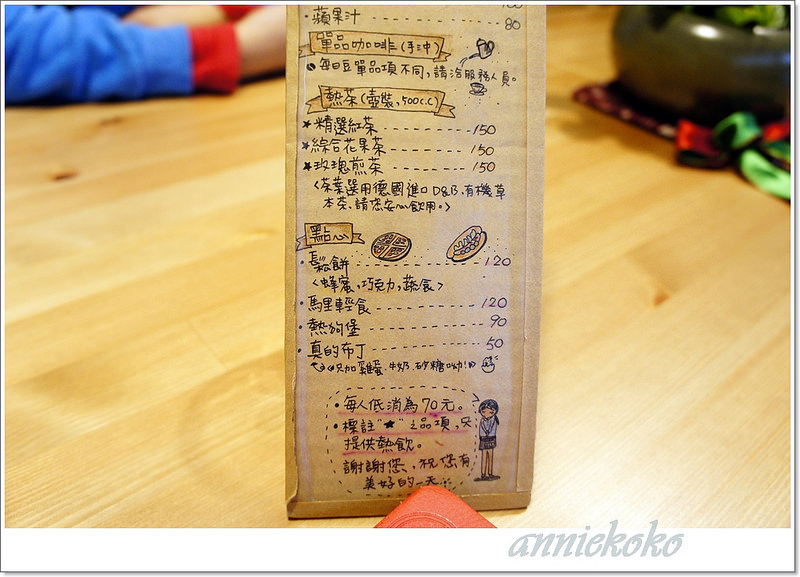 ・蘋果汁 80
單品咖啡(手沖)
每日豆單品項不同,請洽服務人員。
熱茶(壺裝,500c.c)
★精選紅茶 150
★綜合花果茶 150
★玫瑰煎茶 150
<茶葉選用德國進口D&B,有機草
本茶,請您安心飲用。>
點心
・鬆餅 120
<蜂蜜,巧克力,蔬食>
・馬里輕食 120
・熱狗堡 90
・真的布丁 50
只加雞蛋.牛奶.砂糖呦!
・每人低消為70元。
・標註"★"之品項,只
提供熱飲。
謝謝您、祝您有
美好的一天
anniekoko